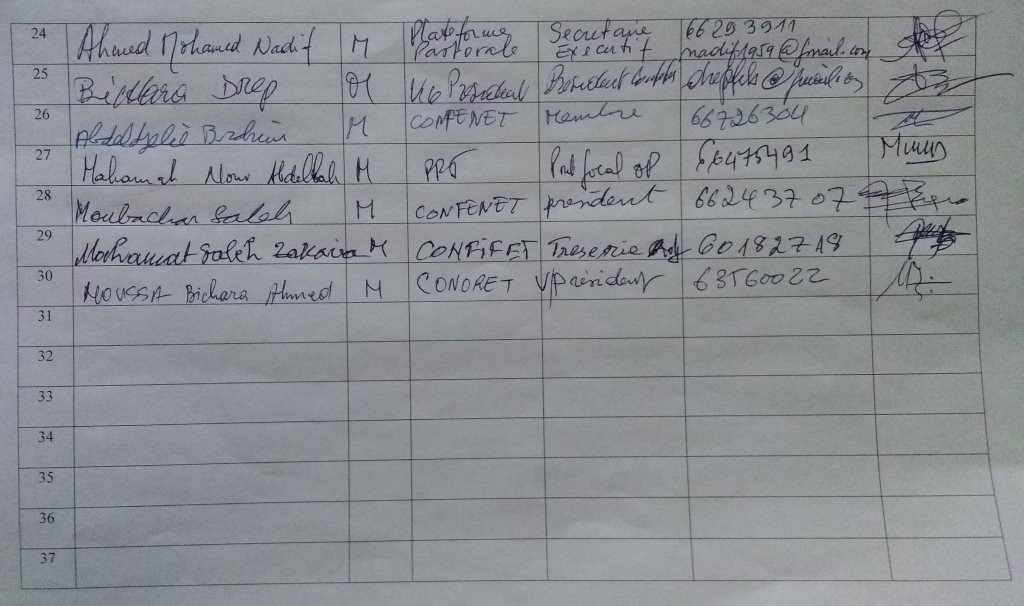 24 Ahmed Mohamed Nadif M Plateforme Pastorale Secretaire Executif 66293911 nadif1959@gmail.com
25 Bichara Drep M President
26 Brahim M CONFENET Membre 66726304
27 Mahamat Nour Abdellah M focal OP 66475491
28 Moubachar Saleh M CONFENET president 66243707
29 Mahamat Saleh Zakaria M CONFIFET Treserie 60182718
30 MOUSSA Bichara Ahmed M CONORET V/président 63560022
31
32
33
34
35
36
37